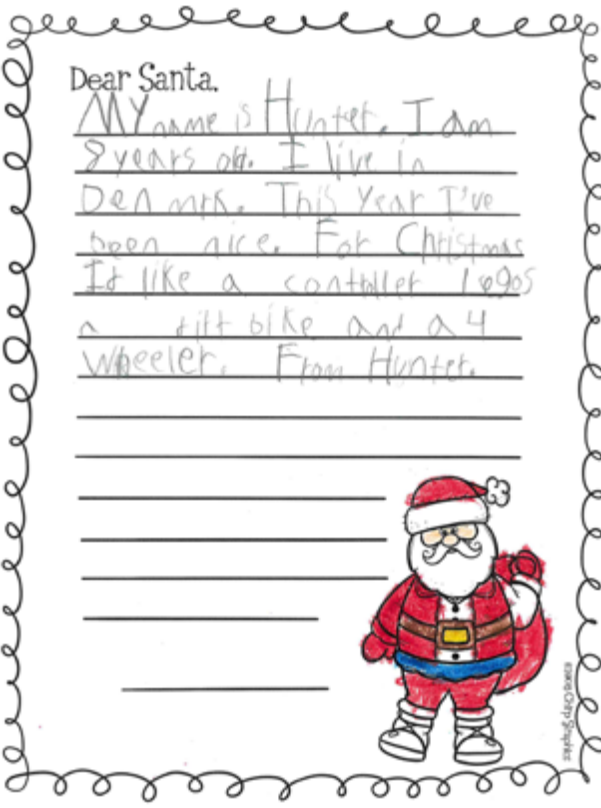 Dear Santa,
MY name is Hunter. I am
8 years old. I live in
Denmrk. This Year I've
been nice. For Christmas
I'd like a controller legos
a dirt bike and a 4
wheeler. From Hunter.